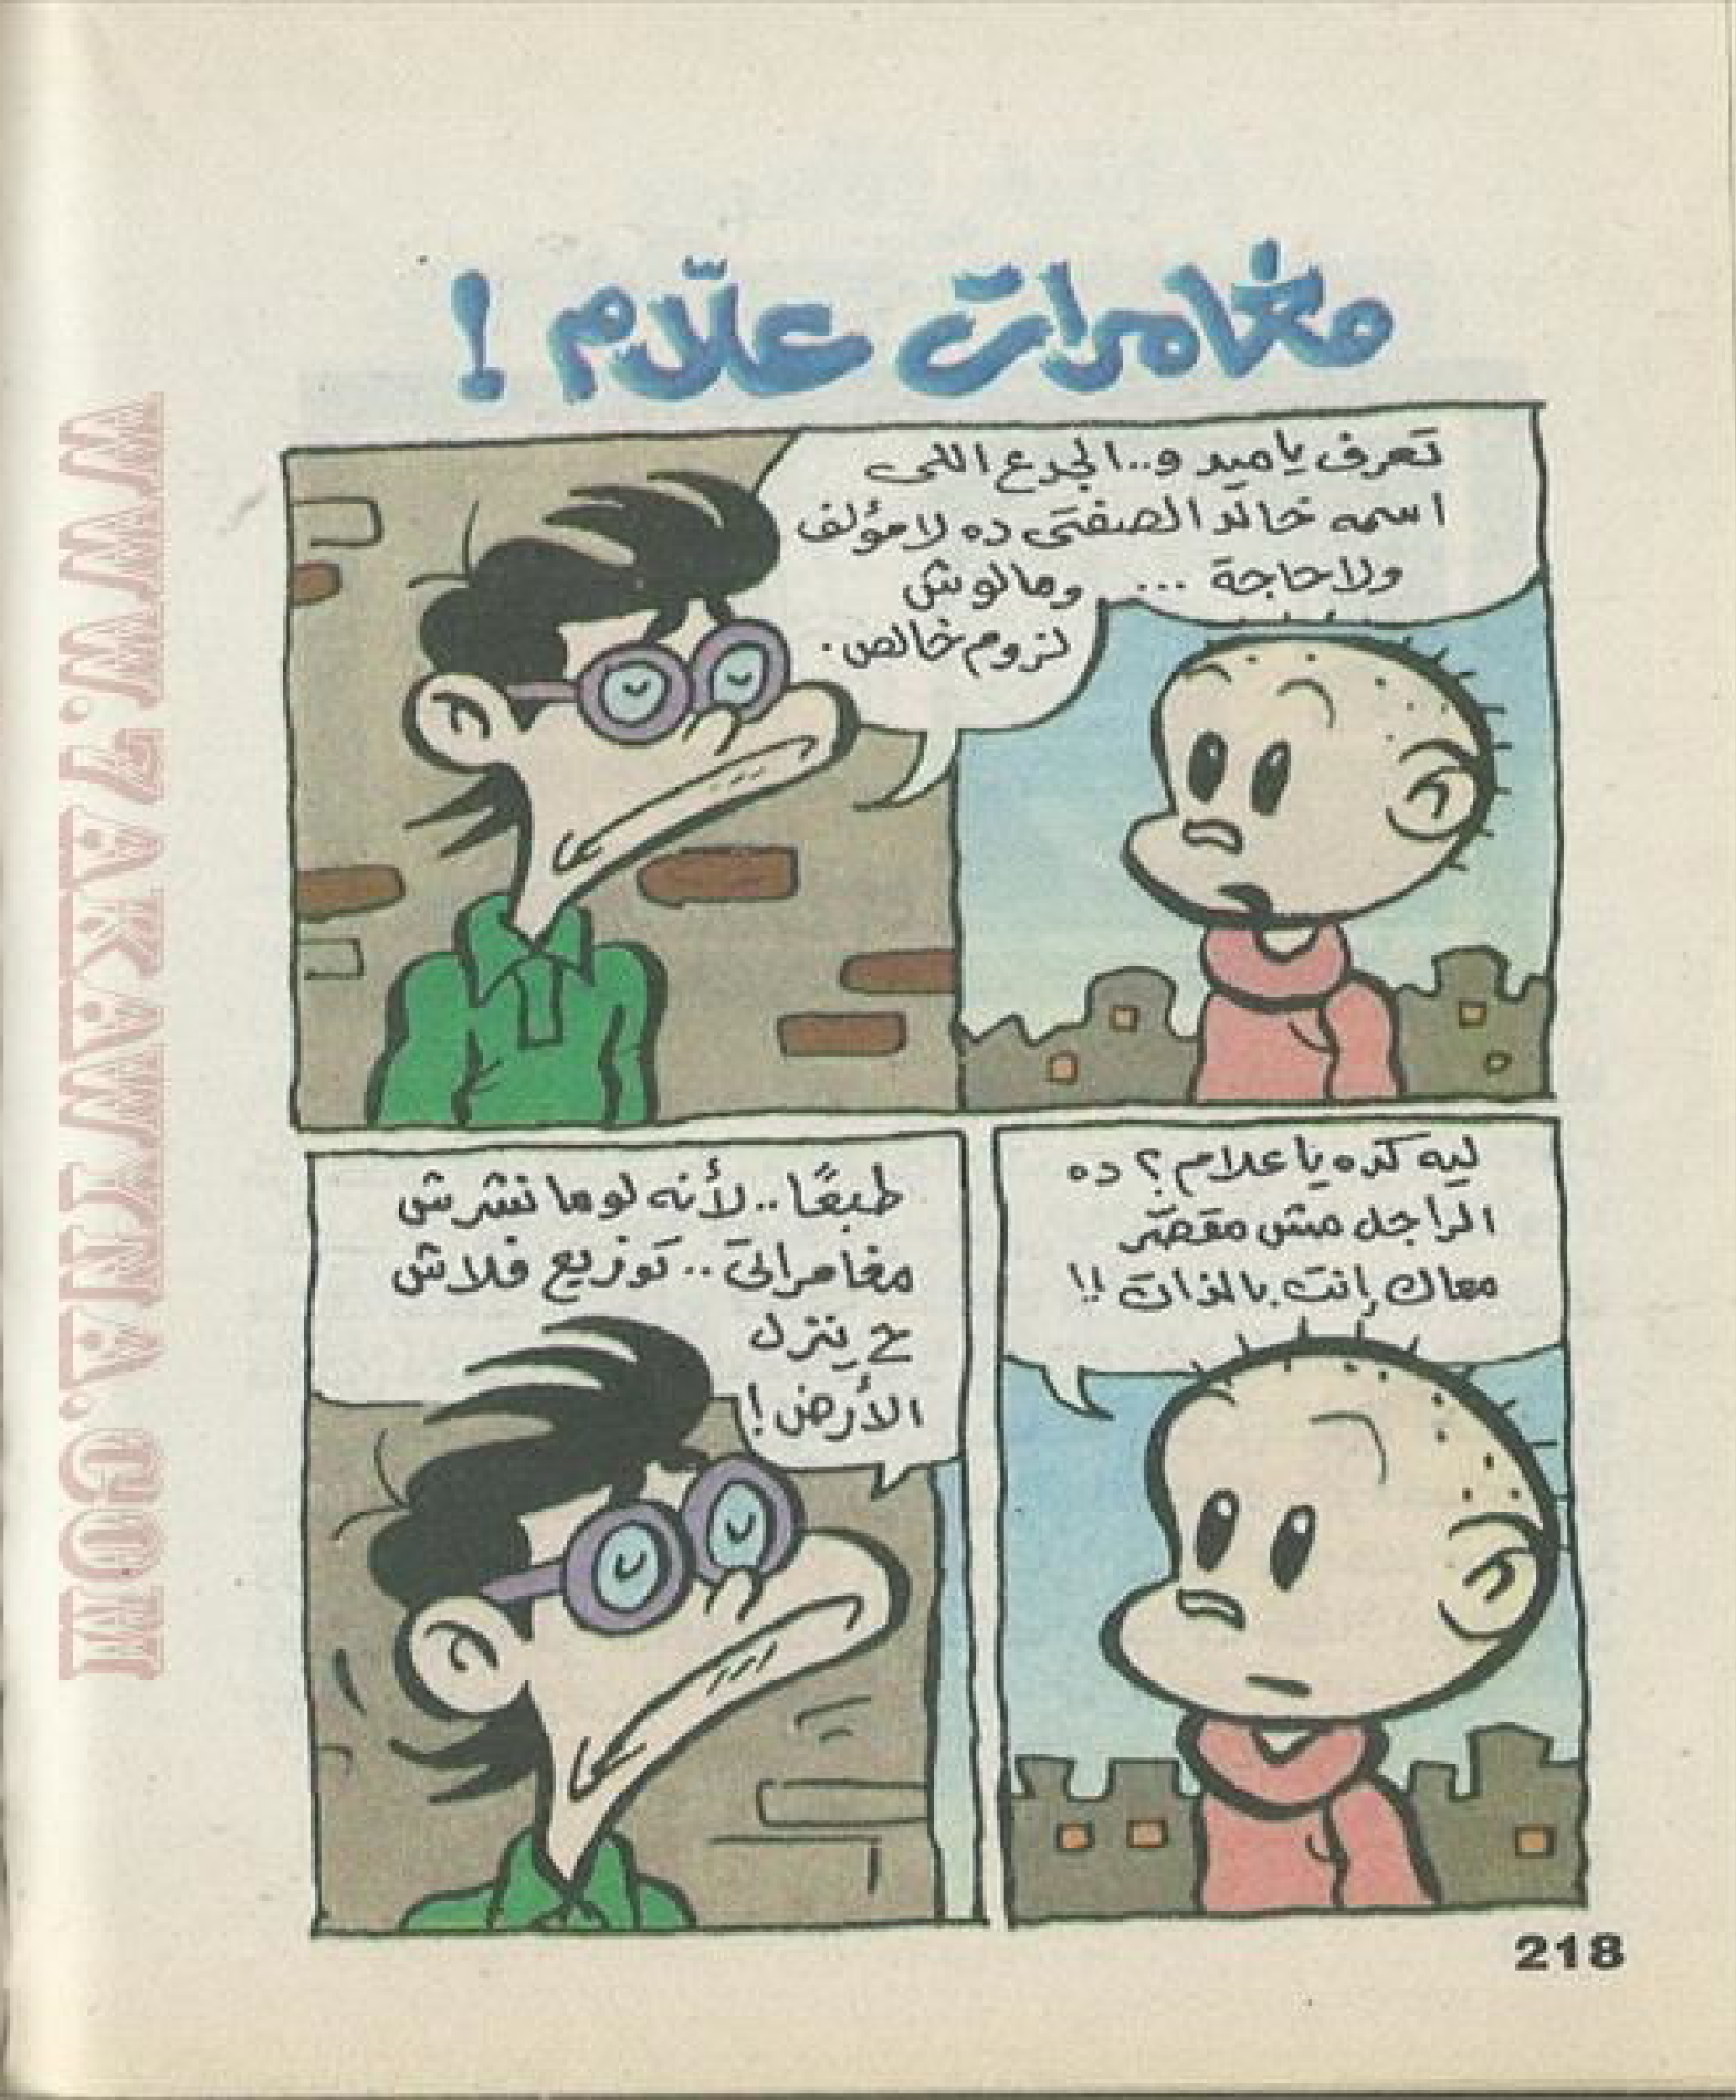 مغامرات علّام !
تعرف يا ميدو.. الجدع اللى
اسمه خالد الصفتى ده لا مؤلف
ولا حاجة ... ومالوش
لزوم خالص.
ليه كده يا علام؟ ده
الراجل مش مقصّر
معاك إنت بالذات !!
طبعًا.. لأنه لو ما نشرش
مغامراتى.. توزيع فلاش
ح ينزل
الأرض!
218
WWW.7AKAWINA.COM